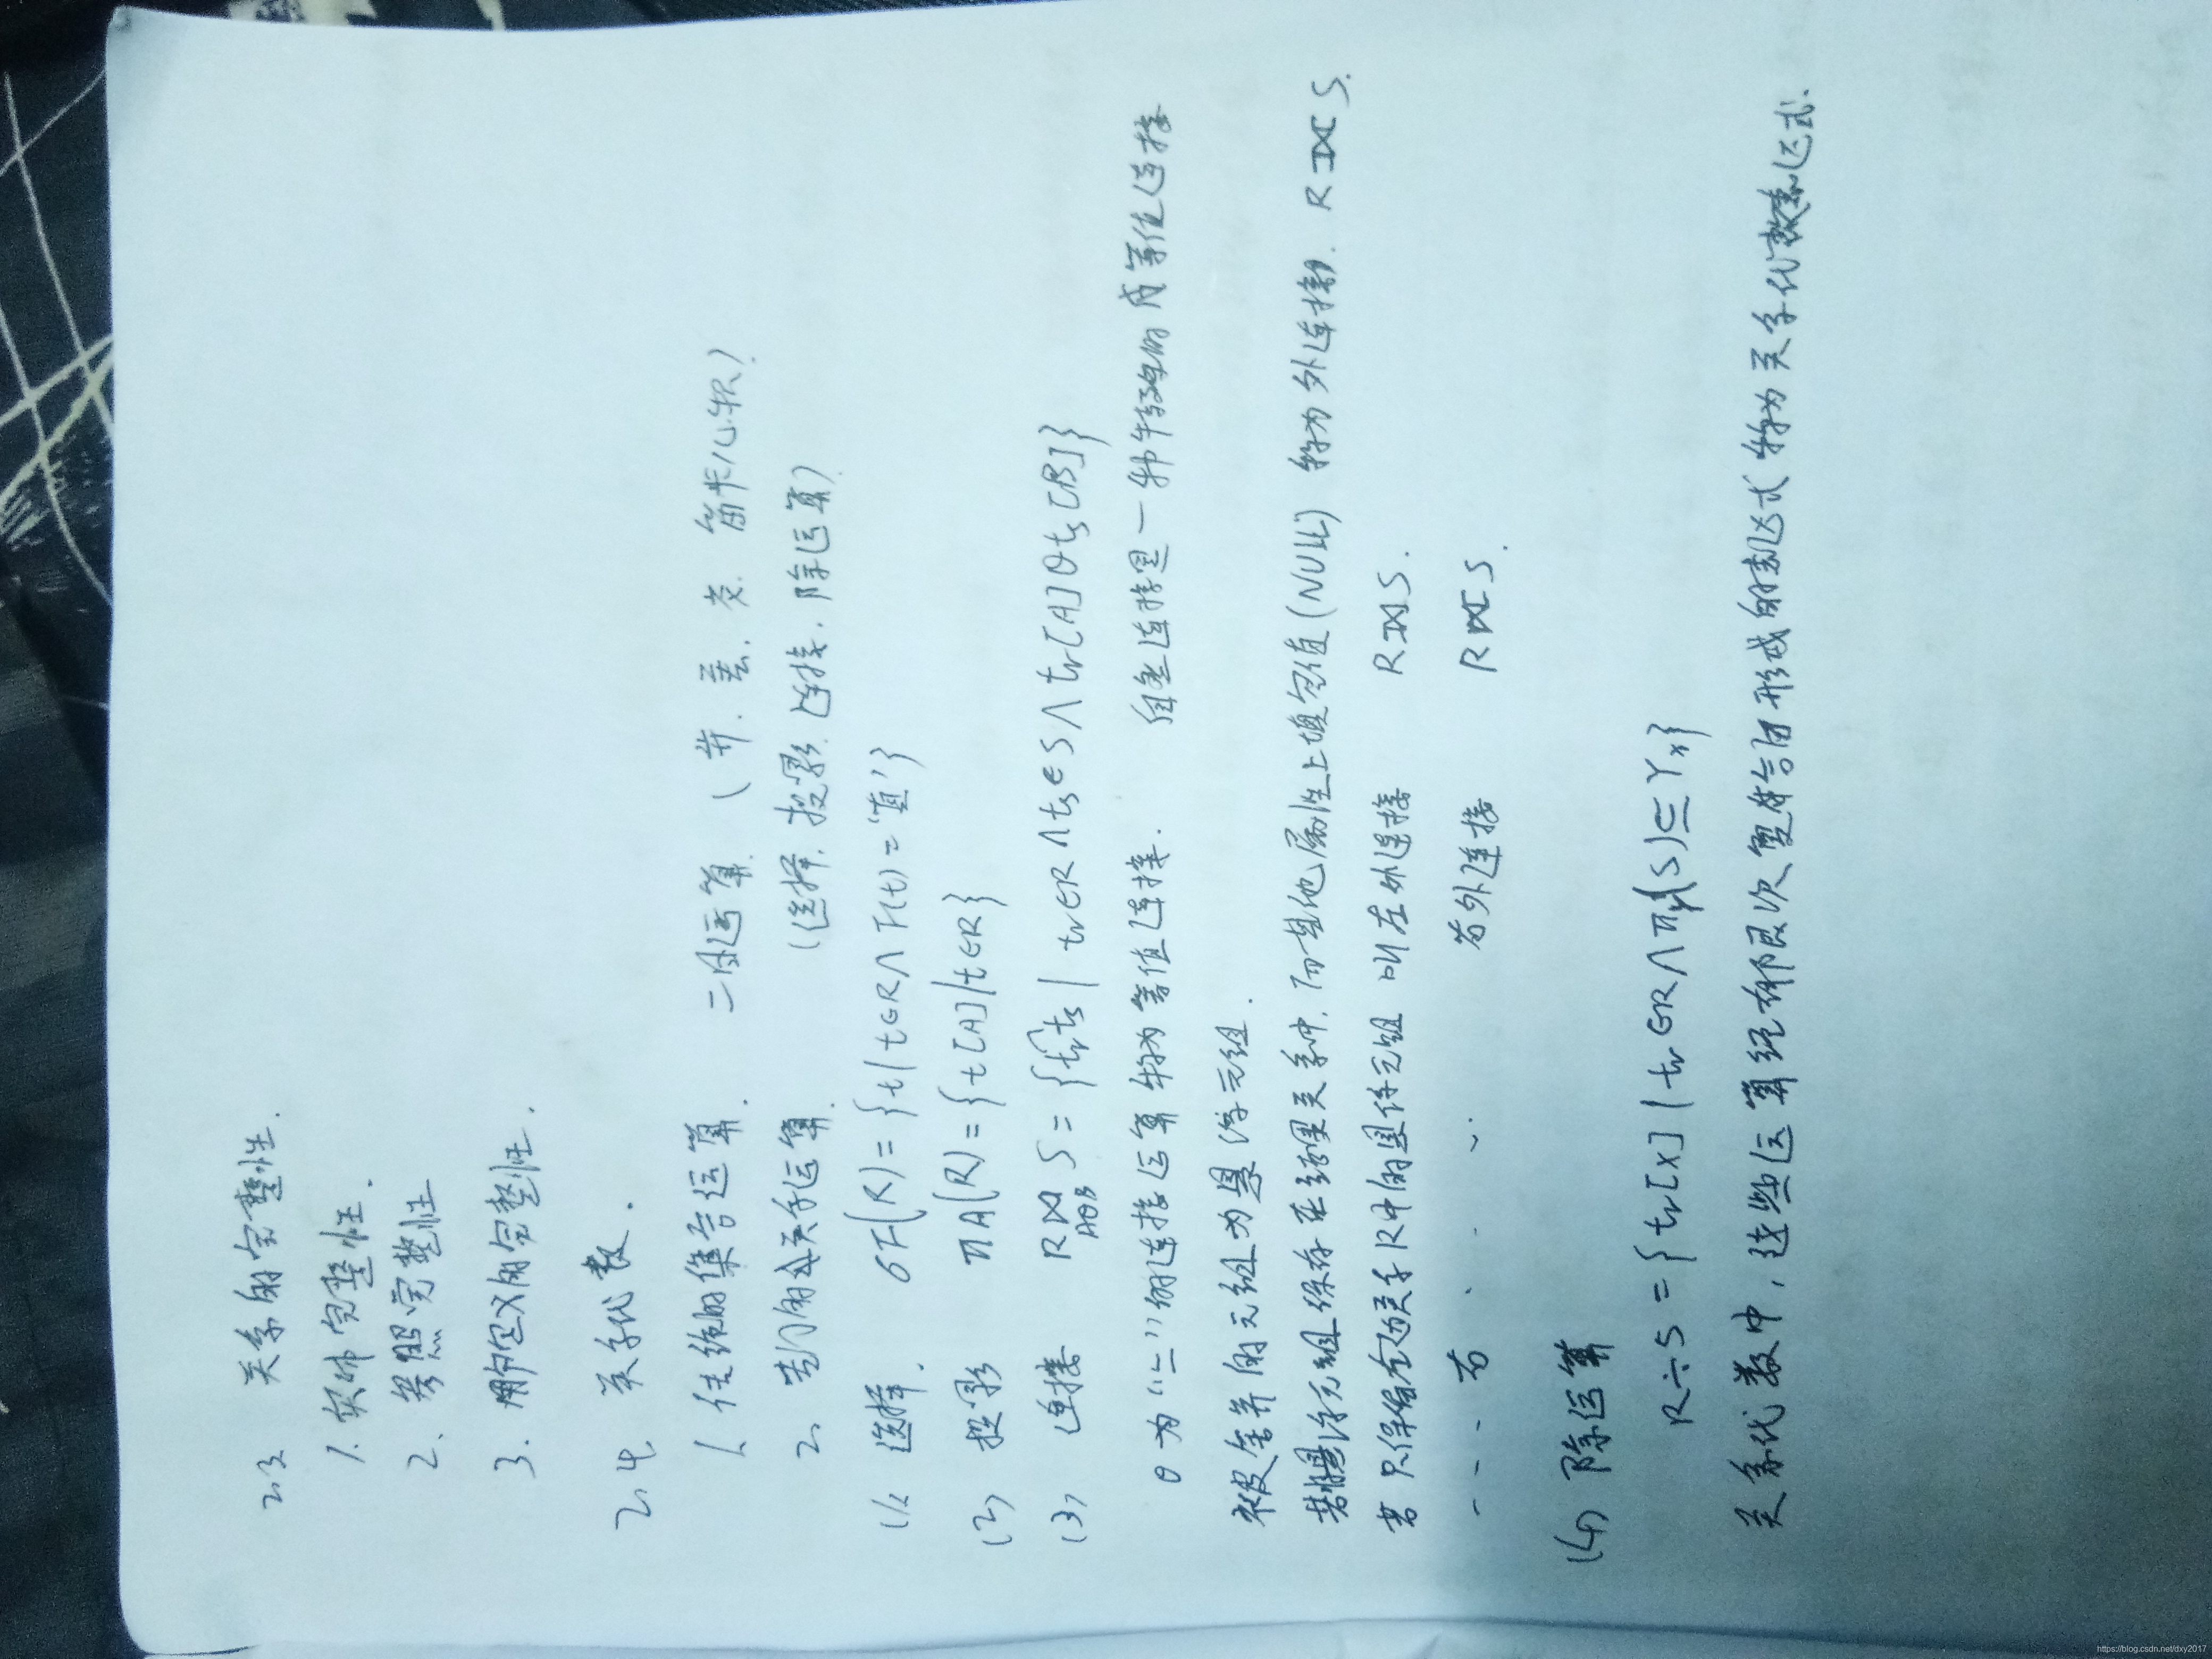 2.3 关系的完整性.
1. 实体完整性.
2. 参照完整性
3. 用户定义的完整性.
2.4. 关系代数.
1. 传统的集合运算. 二目运算. (并. 差. 交. 笛卡儿积)
2. 专门的关系运算. (选择. 投影. 连接. 除运算)
(1) 选择. σF(R)={t|t∈R∧F(t)='真'}
(2) 投影 πA(R)={t[A]|t∈R}
(3) 连接 R⋈S={tr⌢ts|tr∈R∧ts∈S∧tr[A]θts[B]}
AθB
θ为“=”的连接运算称为等值连接. 自然连接是一种特殊的等值连接
被舍弃的元组为悬浮元组.
若把悬浮元组保存在结果关系中.而其他属性上填空值(NULL) 称为外连接. R⟗S.
若只保留左边关系R中的悬浮元组 叫左外连接 R⟕S.
- - - 右 · · · 〃 右外连接 R⟖S.
(4) 除运算
R÷S={tr[X]|tr∈R∧πy(S)⊆Yx}
关系代数中,这些运算经有限次复合后形成的表达式称为关系代数表达式.
https://blog.csdn.net/dxy2017